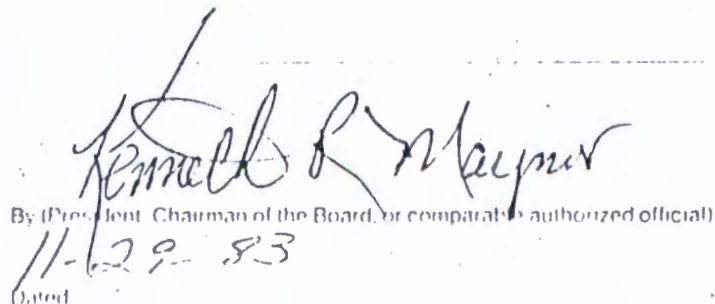 Kenneth R Maynor
By (President, Chairman of the Board, or comparable authorized official)
11-29-83
Dated